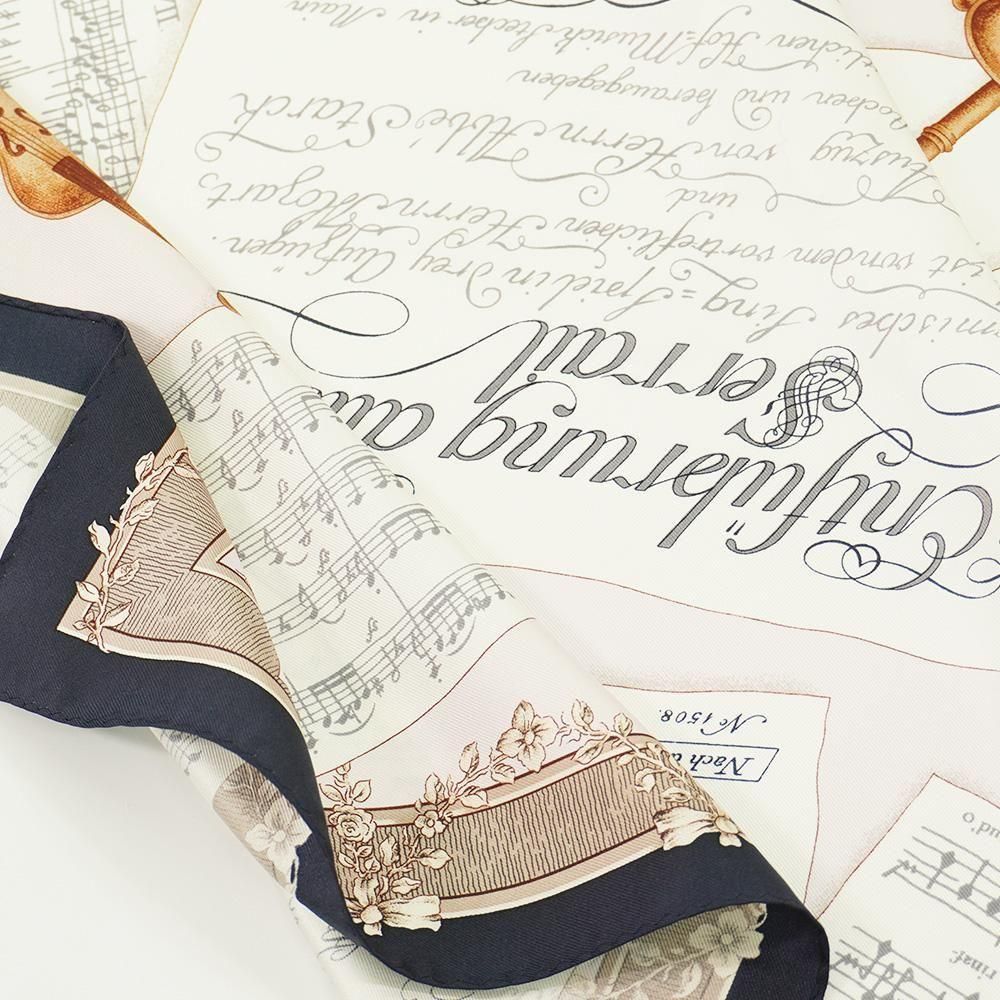 Nach
Nº 1508.
Entführung au
Serrail
misches Sing=Spiel in drey Aufzügen.
ist von dem vortreflichen Herrn Mozart,
und
Auszug von Herrn Abbé Starck
und herausgegeben
lichen Hof=Musick Stecher in Main